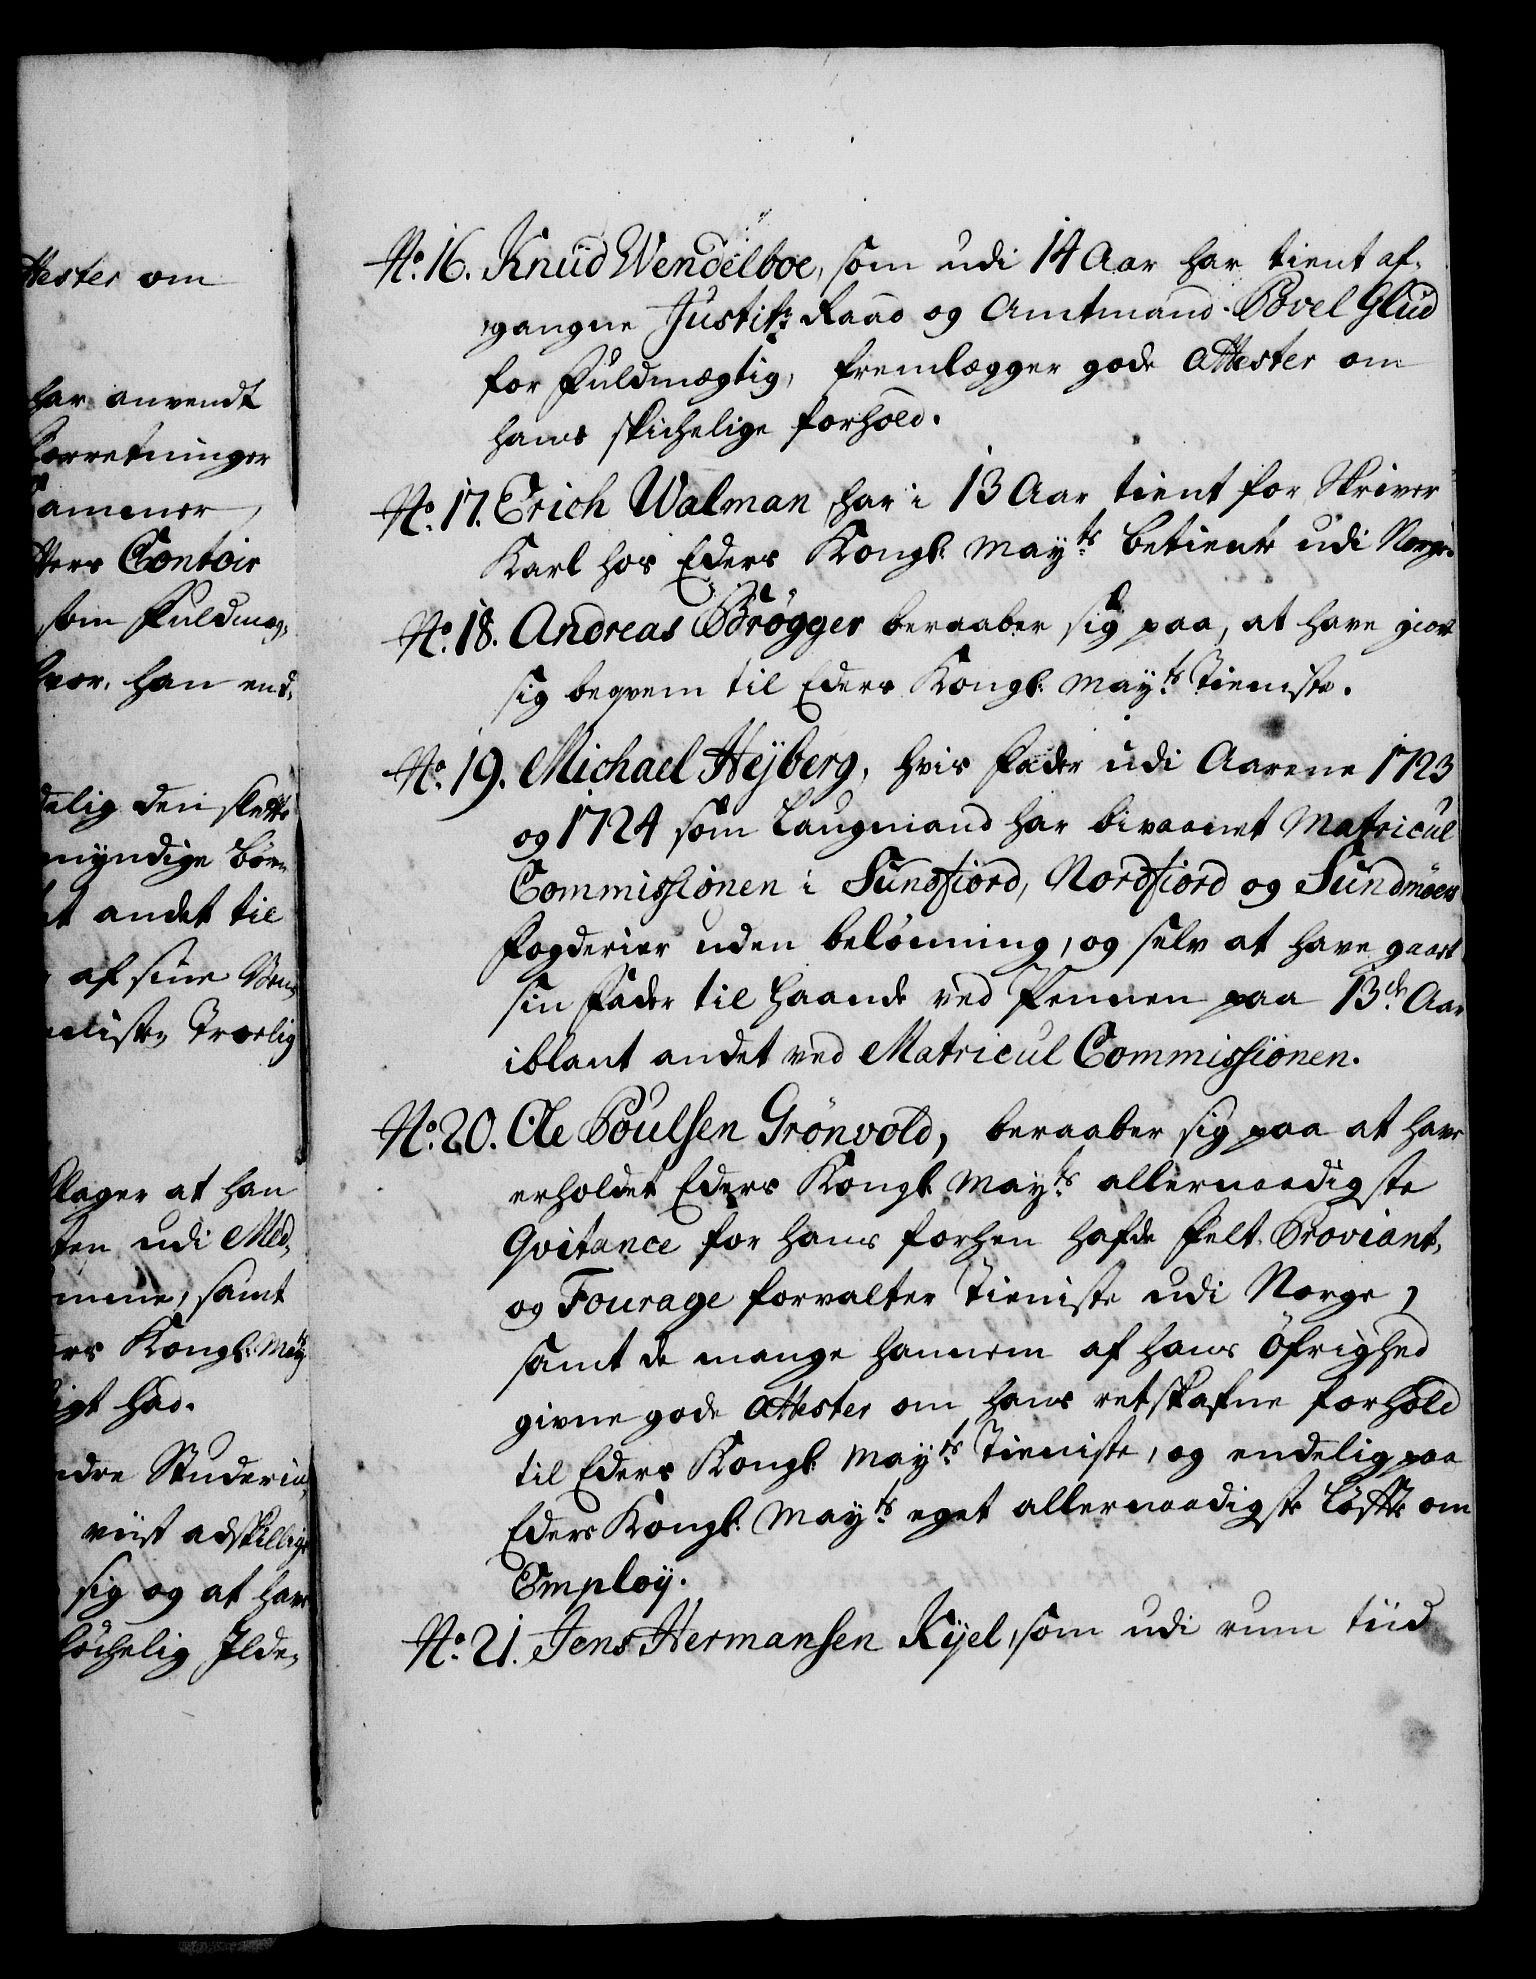 ttester om
har anvendt
Forretninger
Cammer
tters Contoir
som Fuldmæg-
hvor han end-
delig den slette
myndige Børn
et andet til
af sine
Troelig
klager at han
ten udi Med-
mme, samt
ers Kongl: May
igt had.
ndre Studerin
viist adskillige
sig og at have
löchelig Ilde-
No. 16. Knud Wendelboe, som udi 14 Aar har tient af-
gangne Justitz Raad og Amtmand Povel Glud
for Fuldmægtig, fremlægger gode attester om
hans skichelige forhold.
No. 17. Erich Walman har i 13 Aar tient for Skriver
Karl hos Eders Kongl: Mayts betiente udi Norge.
No. 18. Andreas Brøgger beraaber sig paa, at have giort
sig beqvem til Eders Kongl: Mayts Tieniste.
No. 19. Michael Heÿberg, hvis Fader udi Aarene 1723
og 1724 som Laugmand har bivaanet Matricul
Commissionen i Sundfiord, Nordfiord og Sundmøers
Fogderier uden belönning, og selv at have gaaet
sin Fader til Haande ved Pennen paa 13de Aar
iblant andet ved Matricul Commissionen.
No. 20. Ole Poulsen Grönvold, beraaber sig paa at have
erholdet Eders Kongl: Mayts allernaadigste
Qvitance for hans forhen hafde Felt-Proviant-
og Fourage forvalter Tieniste udi Norge,
samt de mange hannem af hans Öfrighed
givne gode attester om hans retskafne forhold
til Eders Kongl: Mayts Tieniste, og endelig paa
Eders Kongl: Mayts eget allernaadigste Löffte om
Employ.
No. 21. Jens Hermansen Kijel, som udi rum tiid